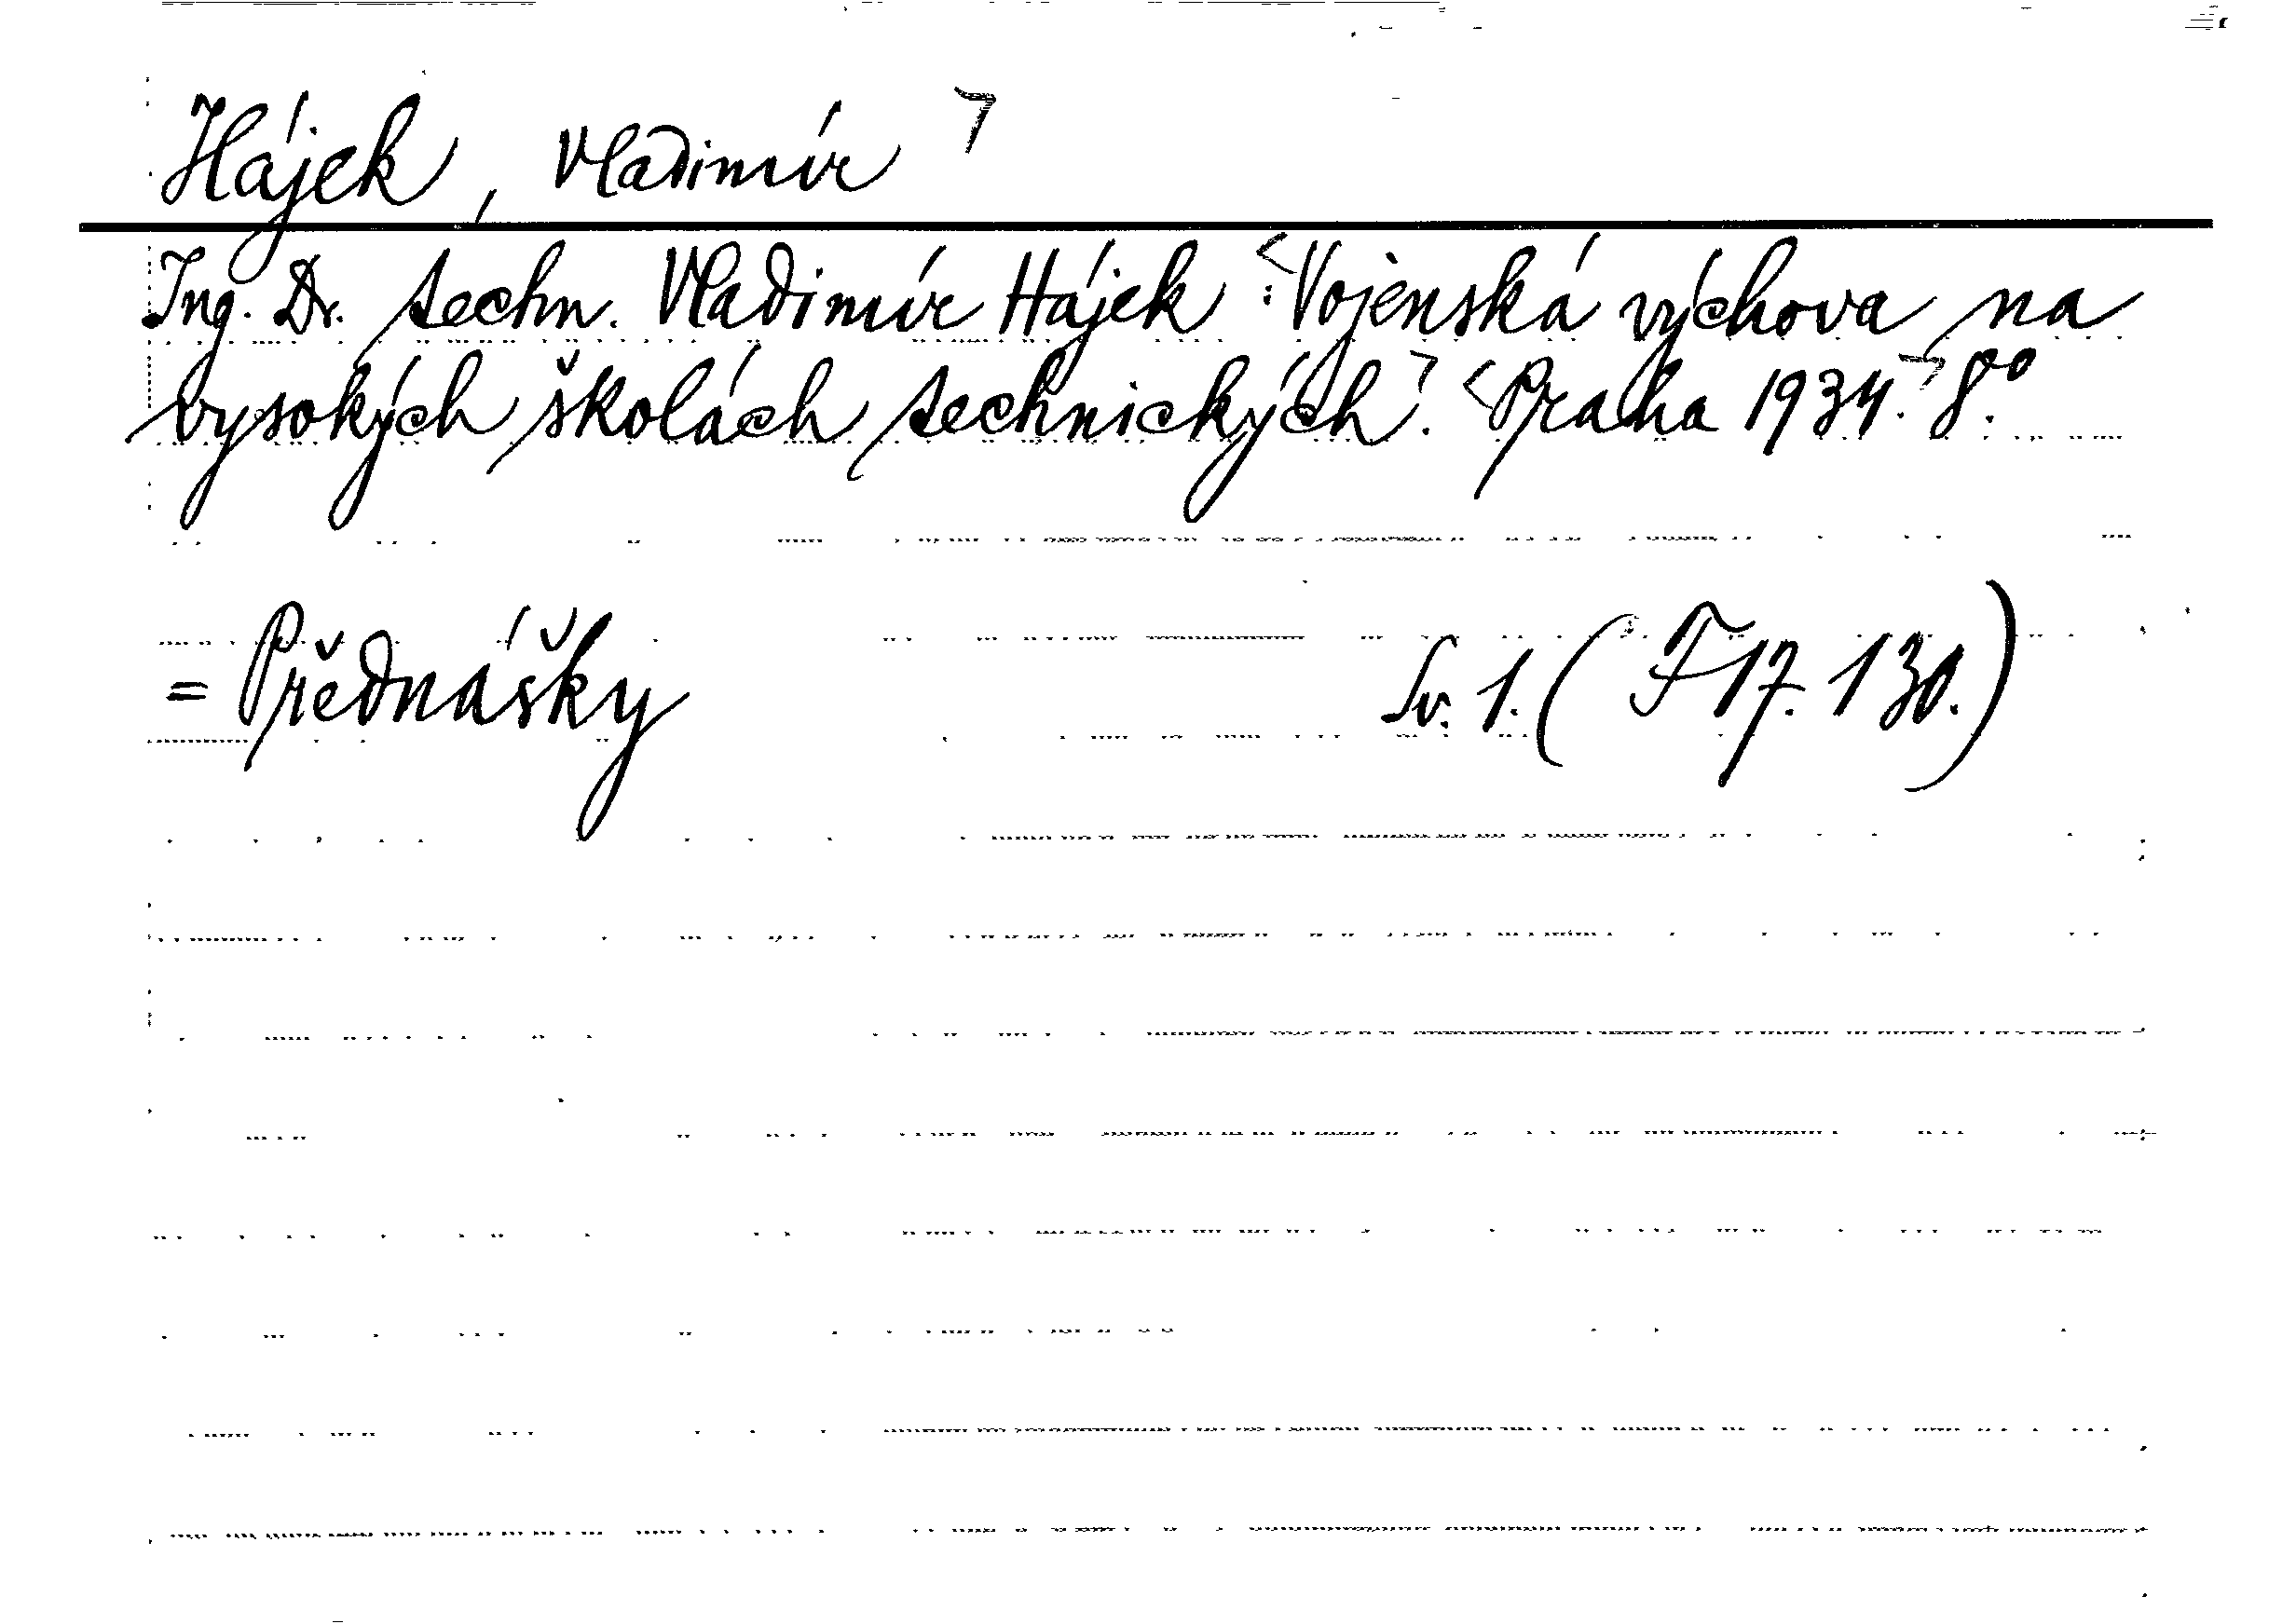 Hájek, Vladimír
Ing. Dr. techn. Vladimír Hájek: Vojenská výchova na
vysokých školách technických. Praha 1934. 8°.
= Přednášky Sv. 1. (F 17. 130.)